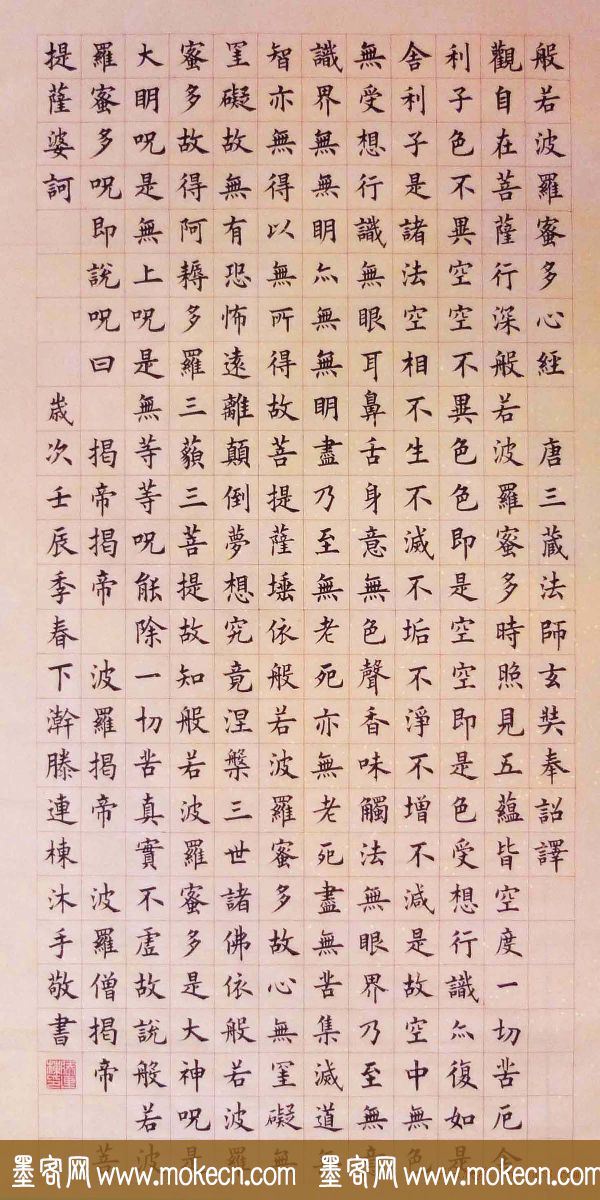 般若波羅蜜多心經 唐三藏法師玄奘奉詔譯
觀自在菩薩行深般若波羅蜜多時照見五蘊皆空度一切苦厄舍
利子色不異空空不異色色即是空空即是色受想行識亦復如是
舍利子是諸法空相不生不滅不垢不淨不增不減是故空中無色
無受想行識無眼耳鼻舌身意無色聲香味觸法無眼界乃至無意
識界無無明亦無無明盡乃至無老死亦無老死盡無苦集滅道無
智亦無得以無所得故菩提薩埵依般若波羅蜜多故心無罣礙無
罣礙故無有恐怖遠離顛倒夢想究竟涅槃三世諸佛依般若波羅
蜜多故得阿耨多羅三藐三菩提故知般若波羅蜜多是大神呪是
大明呪是無上呪是無等等呪能除一切苦真實不虛故說般若波
羅蜜多呪即說呪曰 揭帝揭帝 波羅揭帝 波羅僧揭帝 菩
提薩婆訶 歲次壬辰季春下澣滕連棟沐手敬書
墨客网 www.mokecn.com 墨客网 www.mokecn.com